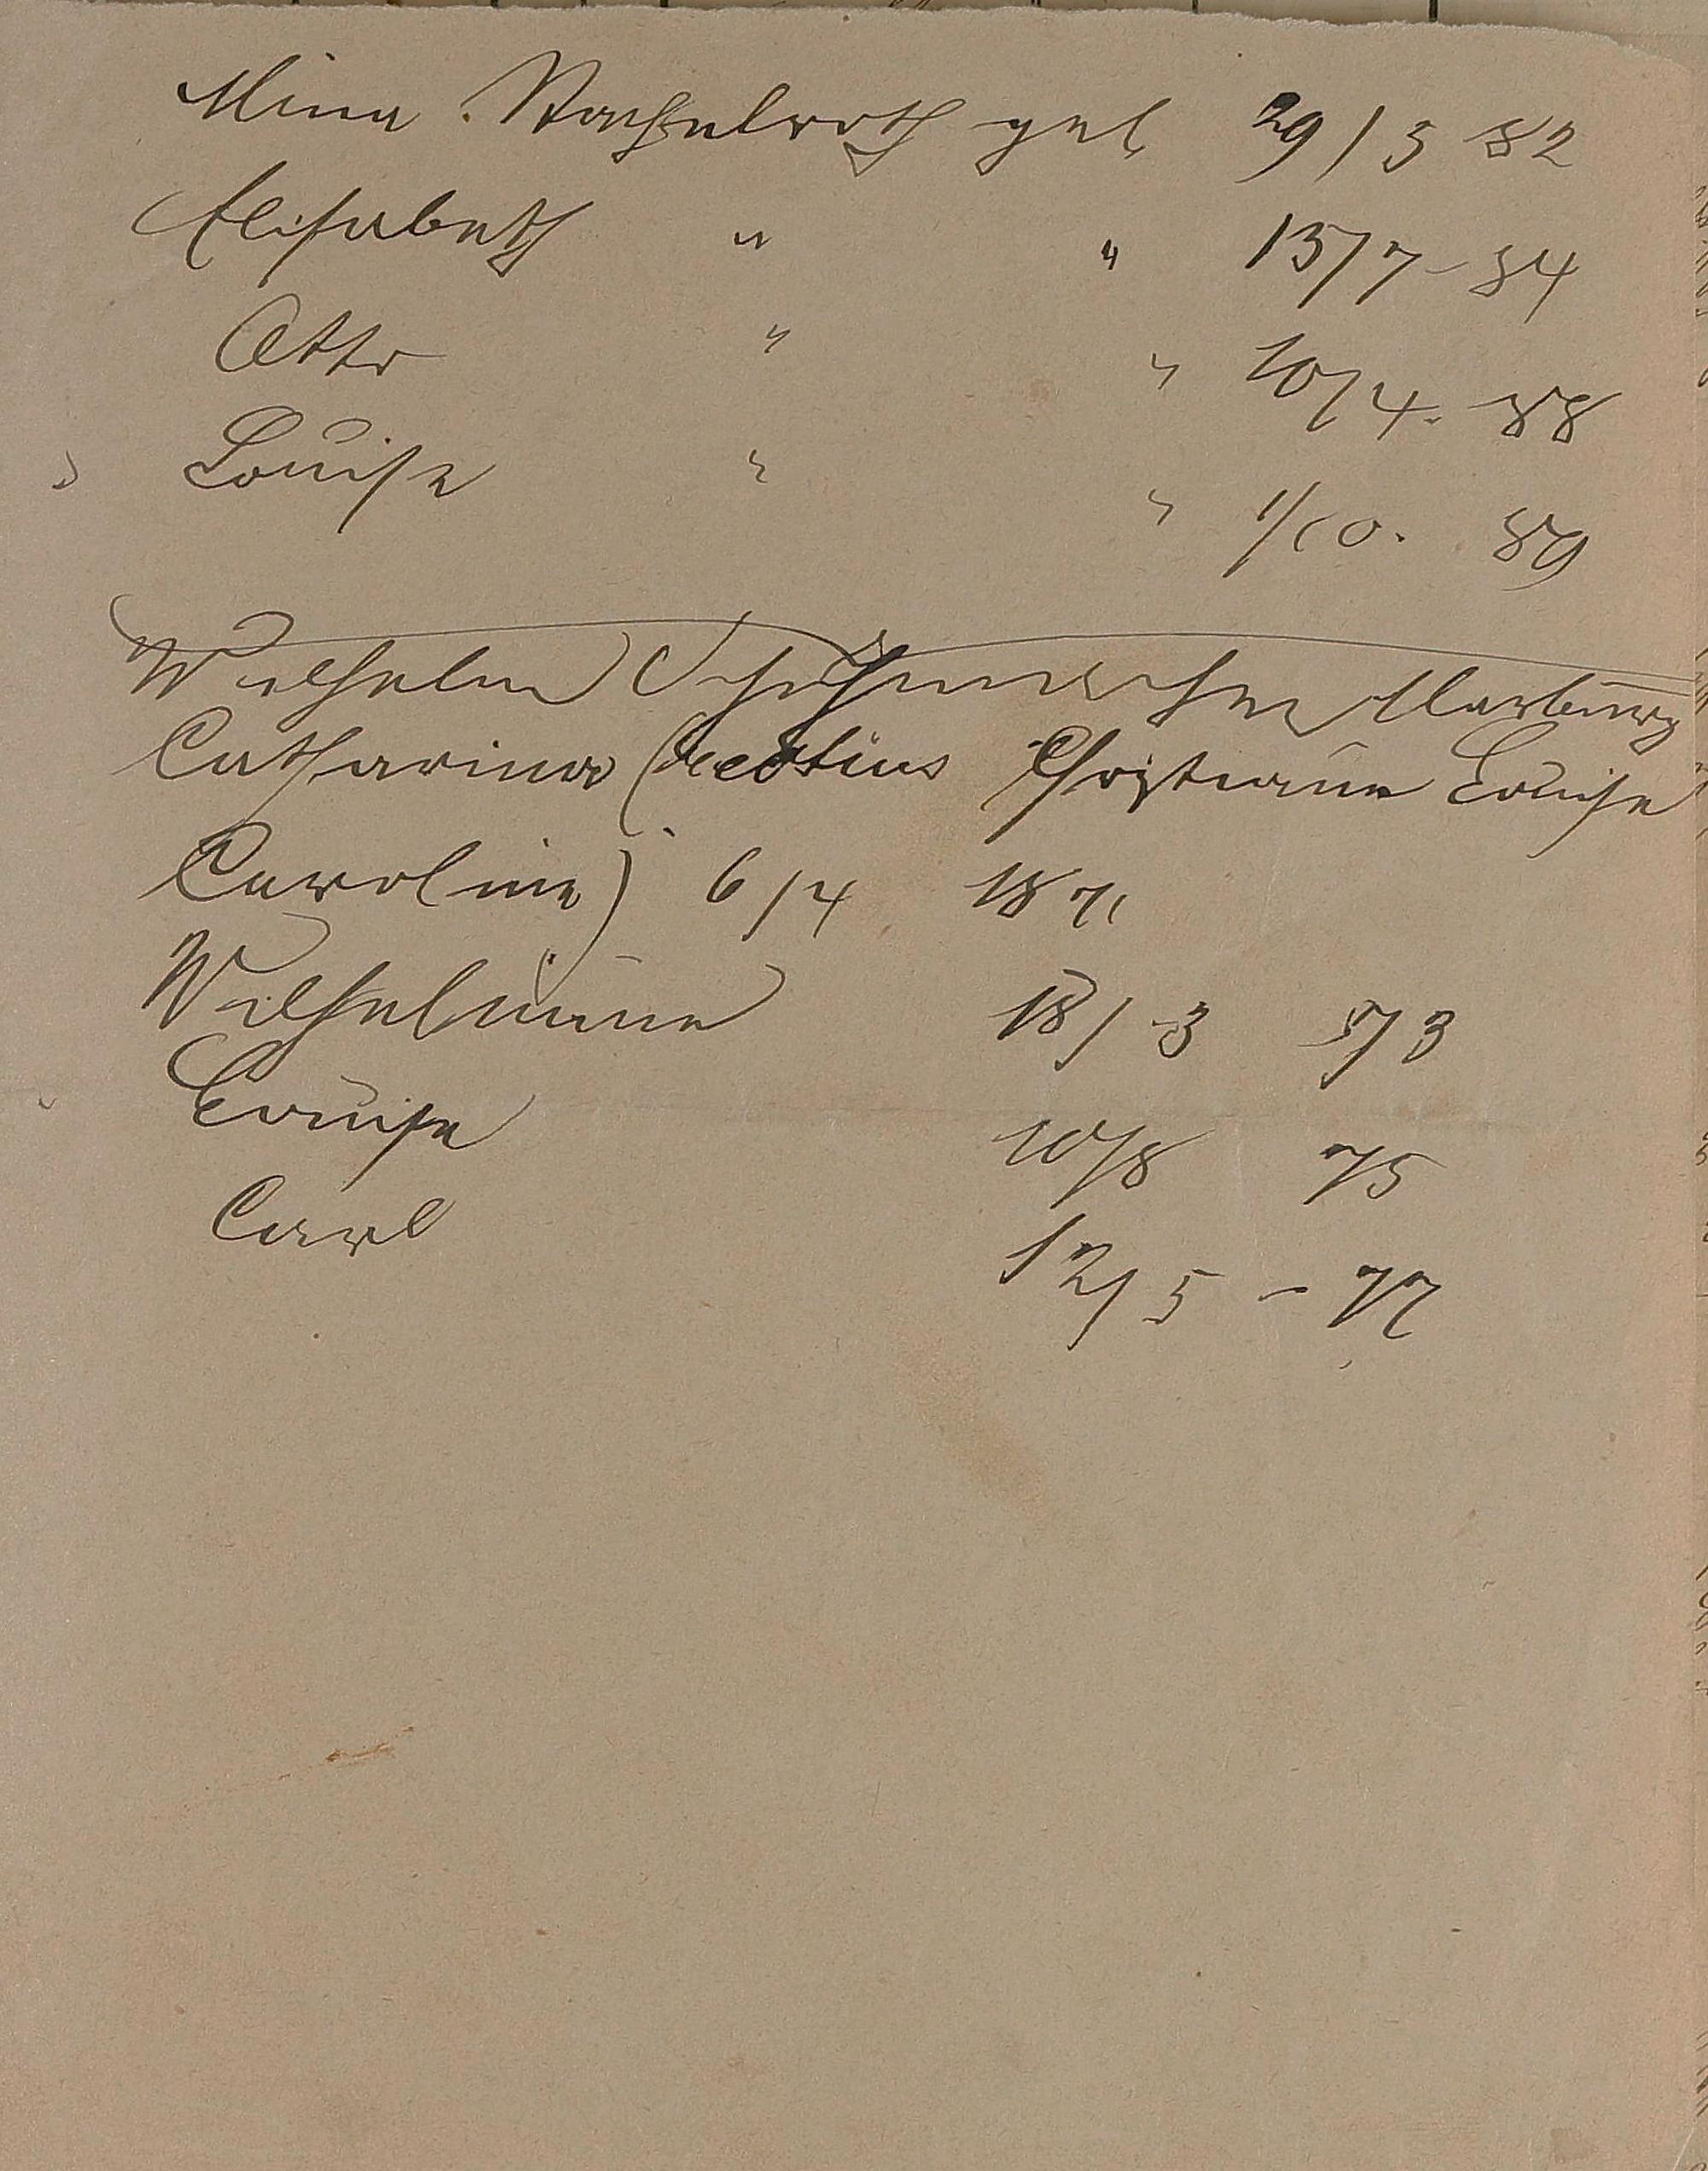 Mina Wachelroth geb 29/3 82
Elisabeth " " 13/7 - 84
Otto " " 10/4. 88
Louise " " 1/10. 89
Wilhelm Marburg
Catharina ( Christiane Louise
Caroline) 6/4 1871
Wilhelmine 18/3 73
Louise 10/8 75
Carl 12/5 - 77